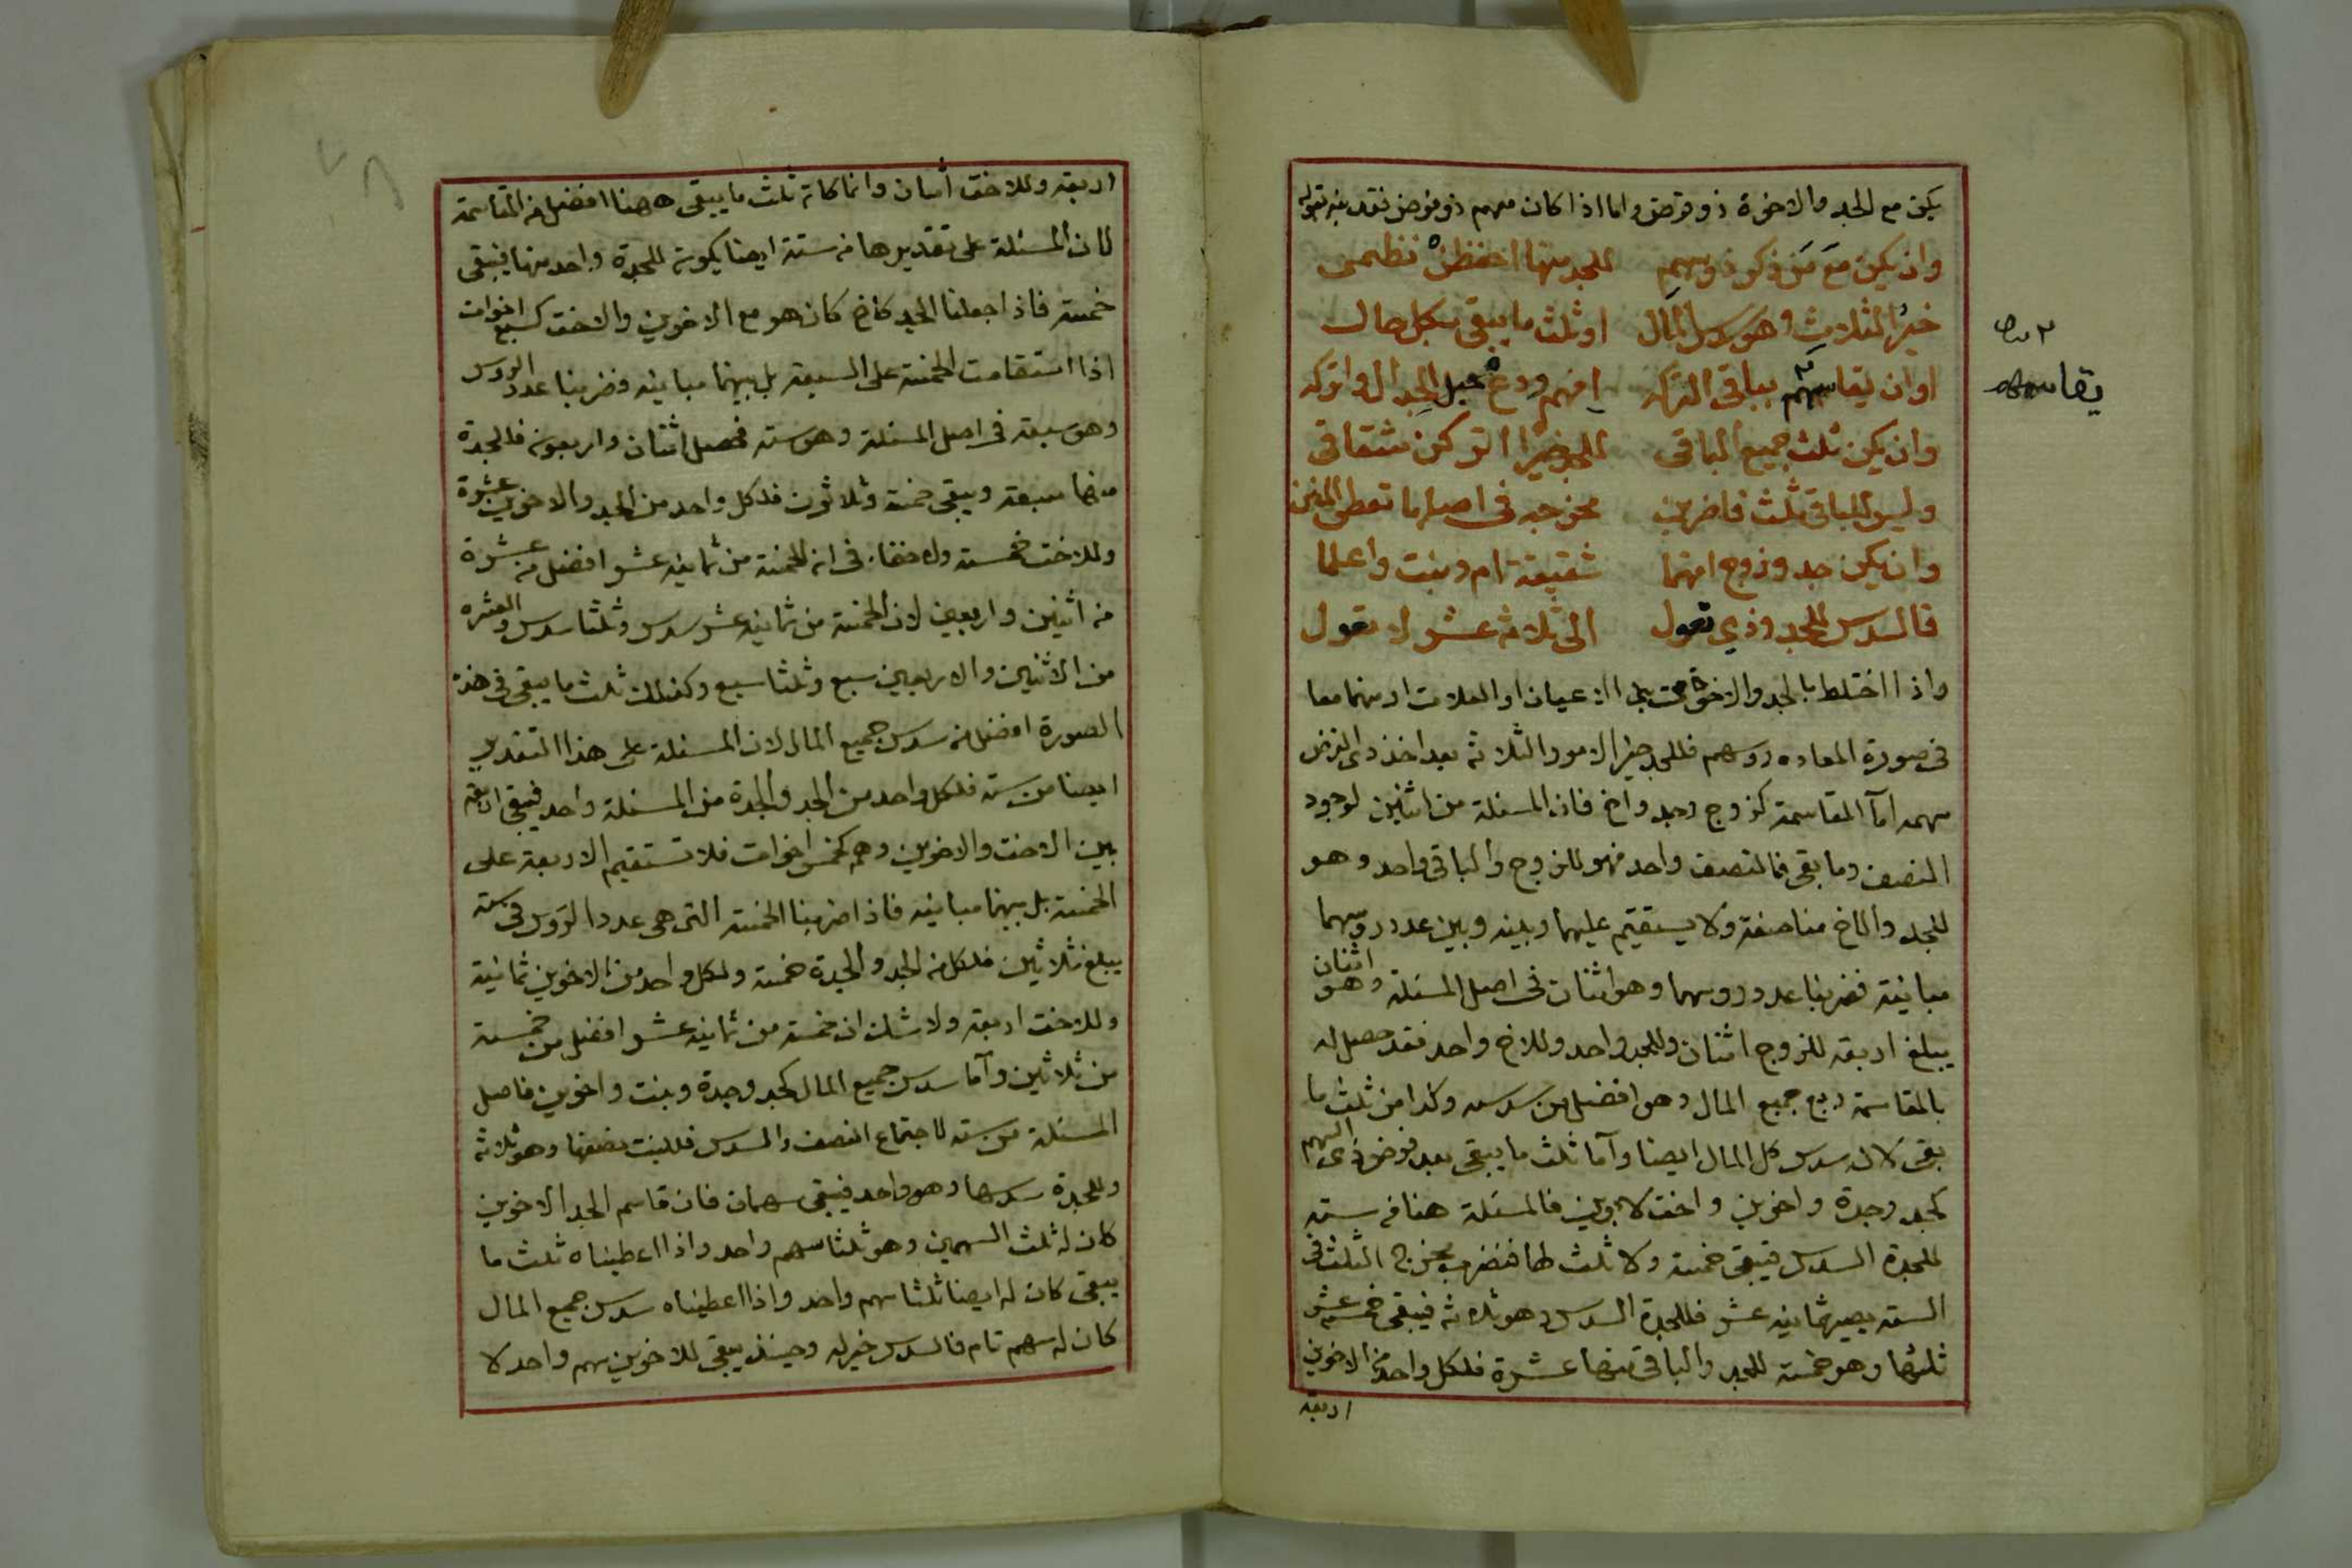 يكن مع الجد والاخوة ذو فرض واما اذا كان معهم ذو فرض فقد بينه بقوله
وان يكن مع من ذكر ذو سهم للجد منها احفظن نظمى
خير الثلاث وهو سدس المال او ثلث ما يبقى بكل حال
او ان يقاسمهم بباقى التركه افهم ودع الجدال واتركه
وان يكن ثلث جميع الباقى للجد خيرا
وليس للباقى ثلث فاضربن مخرجه فى اصلها تعطى المنن
وان يكن جد وزوج افهما شقيقة ام وبنت واعلما
فالسدس للجد وذى تعول الى ثلاثة عشر لا تعول
واذا اختلط بالجد والاخوة الاعيان او العلات او منهما معا
فى صورة المعاده روسهم فللجد خير الامور الثلاثة بعد اخذ ذى الفرض
سهمه اما المقاسمة كزوج وجد واخ فان المسئلة من اثنين لوجود
النصف وما بقى فالنصف واحد فهو للزوج والباقى واحد وهو
للجد والاخ مناصفة ولا يستقيم عليهما وبينه وبين عدد روسهما
مباينة فضربنا عدد روسهما وهو اثنان فى اصل المسئلة وهو اثنان
يبلغ اربعة للزوج اثنان وللجد واحد وللاخ واحد فقد حصل له
بالمقاسمة ربع جميع المال وهو افضل من سدسه وكذا من ثلث ما
بقى لانه سدس كل المال ايضا وآما ثلث ما يبقى بعد فرض ذى السهم
كجد وجدة واخوين واخت لابوين فالمسئلة هنا من ستة
للجدة السدس فيبقى خمسة ولا ثلث لها فنضرب مخرج الثلث فى
الستة يصير ثمانية عشر فللجدة السدس وهو ثلاثة فيبقى خمسة عشر
ثلثها وهو خمسة للجد والباقى منها عشرة فلكل واحد من الاخوين
اربعة
يقاسمه
اربعة وللاخت اثنان وانما كان ثلث ما يبقى ههنا افضل من المقاسمة
لان المسئلة على تقديرها من ستة ايضا يكون للجدة واحد منها فيبقى
خمسة فاذا جعلنا الجد كاخ كان هو مع الاخوين والاخت كسبع اخوات
اذا استقامت الخمسة على السبعة بل بينهما مباينة وضربنا عدد الروس
وهو سبعة فى اصل المسئلة وهو ستة فحصل اثنان واربعون فللجدة
منها سبعة ويبقى خمسة وثلاثون فلكل واحد من الجد والاخوين عشرة
وللاخت خمسة ولا خفاء فى ان الخمسة من ثمانية عشر افضل من عشرة
من اثنين واربعين لان الخمسة من ثمانية عشر سدس وثلثا سدس والعشرة
من الاثنين والاربعين سبع وثلثا سبع وكذلك ثلث ما يبقى فى هذه
الصورة افضل من سدس جميع المال لان المسئلة على هذا التقدير
ايضا من ستة فلكل واحد من الجد والجدة من المسئلة واحد فيبقى اربعة
بين الاخت والاخوين وهم كخمس اخوات فلا تستقيم الاربعة على
الخمسة بل بينهما مباينة فاذا ضربنا الخمسة التى هى عدد الروس فى ستة
يبلغ ثلاثين فلكل من الجد والجدة خمسة ولكل واحد من الاخوين ثمانية
وللاخت اربعة ولا شك ان خمسة من ثمانية عشر افضل من خمسة
من ثلاثين وآما سدس جميع المال كجد وجدة وبنت واخوين فاصل
المسئلة من ستة لاجتماع النصف والسدس فللبنت نصفها وهو ثلاثة
وللجدة سدسها وهو واحد فيبقى سهمان فان قاسم الجد الاخوين
كان له ثلث السهمين وهو ثلثا سهم واحد واذا اعطيناه ثلث ما
يبقى كان له ايضا ثلثا سهم واحد واذا اعطيناه سدس جميع المال
كان له سهم تام فالسدس خير له وحينئذ يبقى للاخوين سهم واحد لا